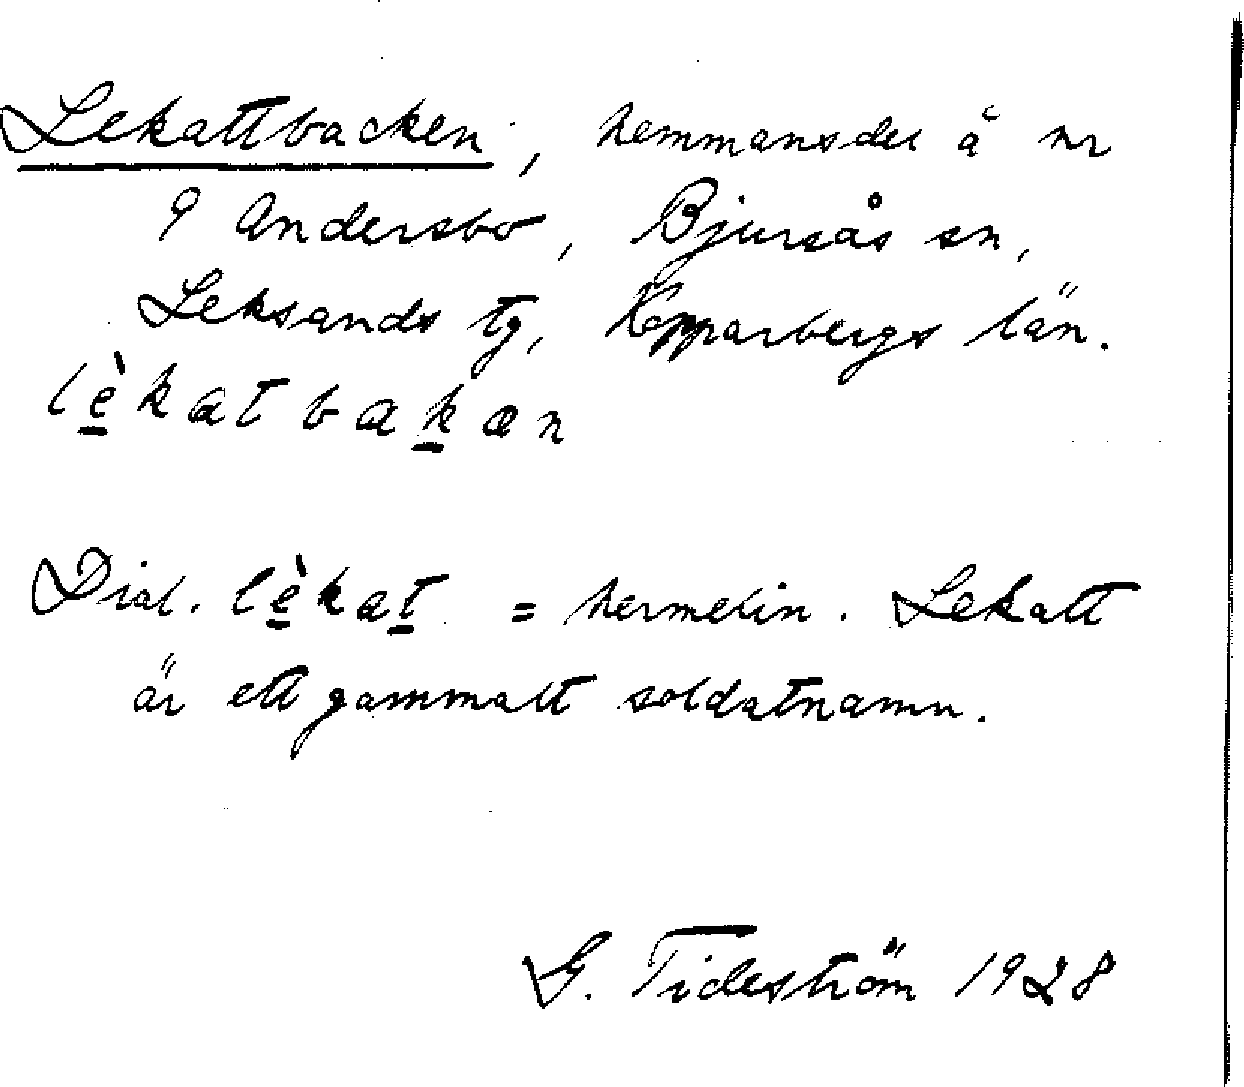 Lekattbacken, hemmansdel å nr
9 Andersbo, Bjursås sn,
Leksands tg, Kopparbergs län.
lè̱katbaḵan
Dial. lè̱kaṯ = hermelin. Lekatt
är ett gammalt soldatnamn.
G. Tideström 1928